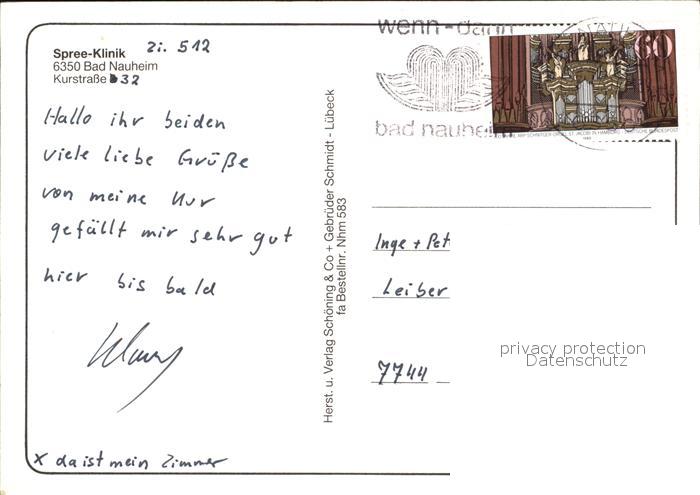 Spree-Klinik Zi. 512
6350 Bad Nauheim
Kurstraße 32
Hallo ihr beiden
viele liebe Grüße
von meine Kur
gefällt mir sehr gut
hier bis bald
Klaus
x da ist mein Zimmer
Herst. u. Verlag Schöning & Co + Gebrüder Schmidt - Lübeck
fa Bestellnr. Nhm 583
wenn-dann
bad nauheim
60
Inge + Pet
Leiber
7744
privacy protection
Datenschutz